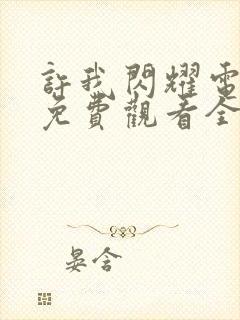 許我閃耀電
免費觀看全
晏含